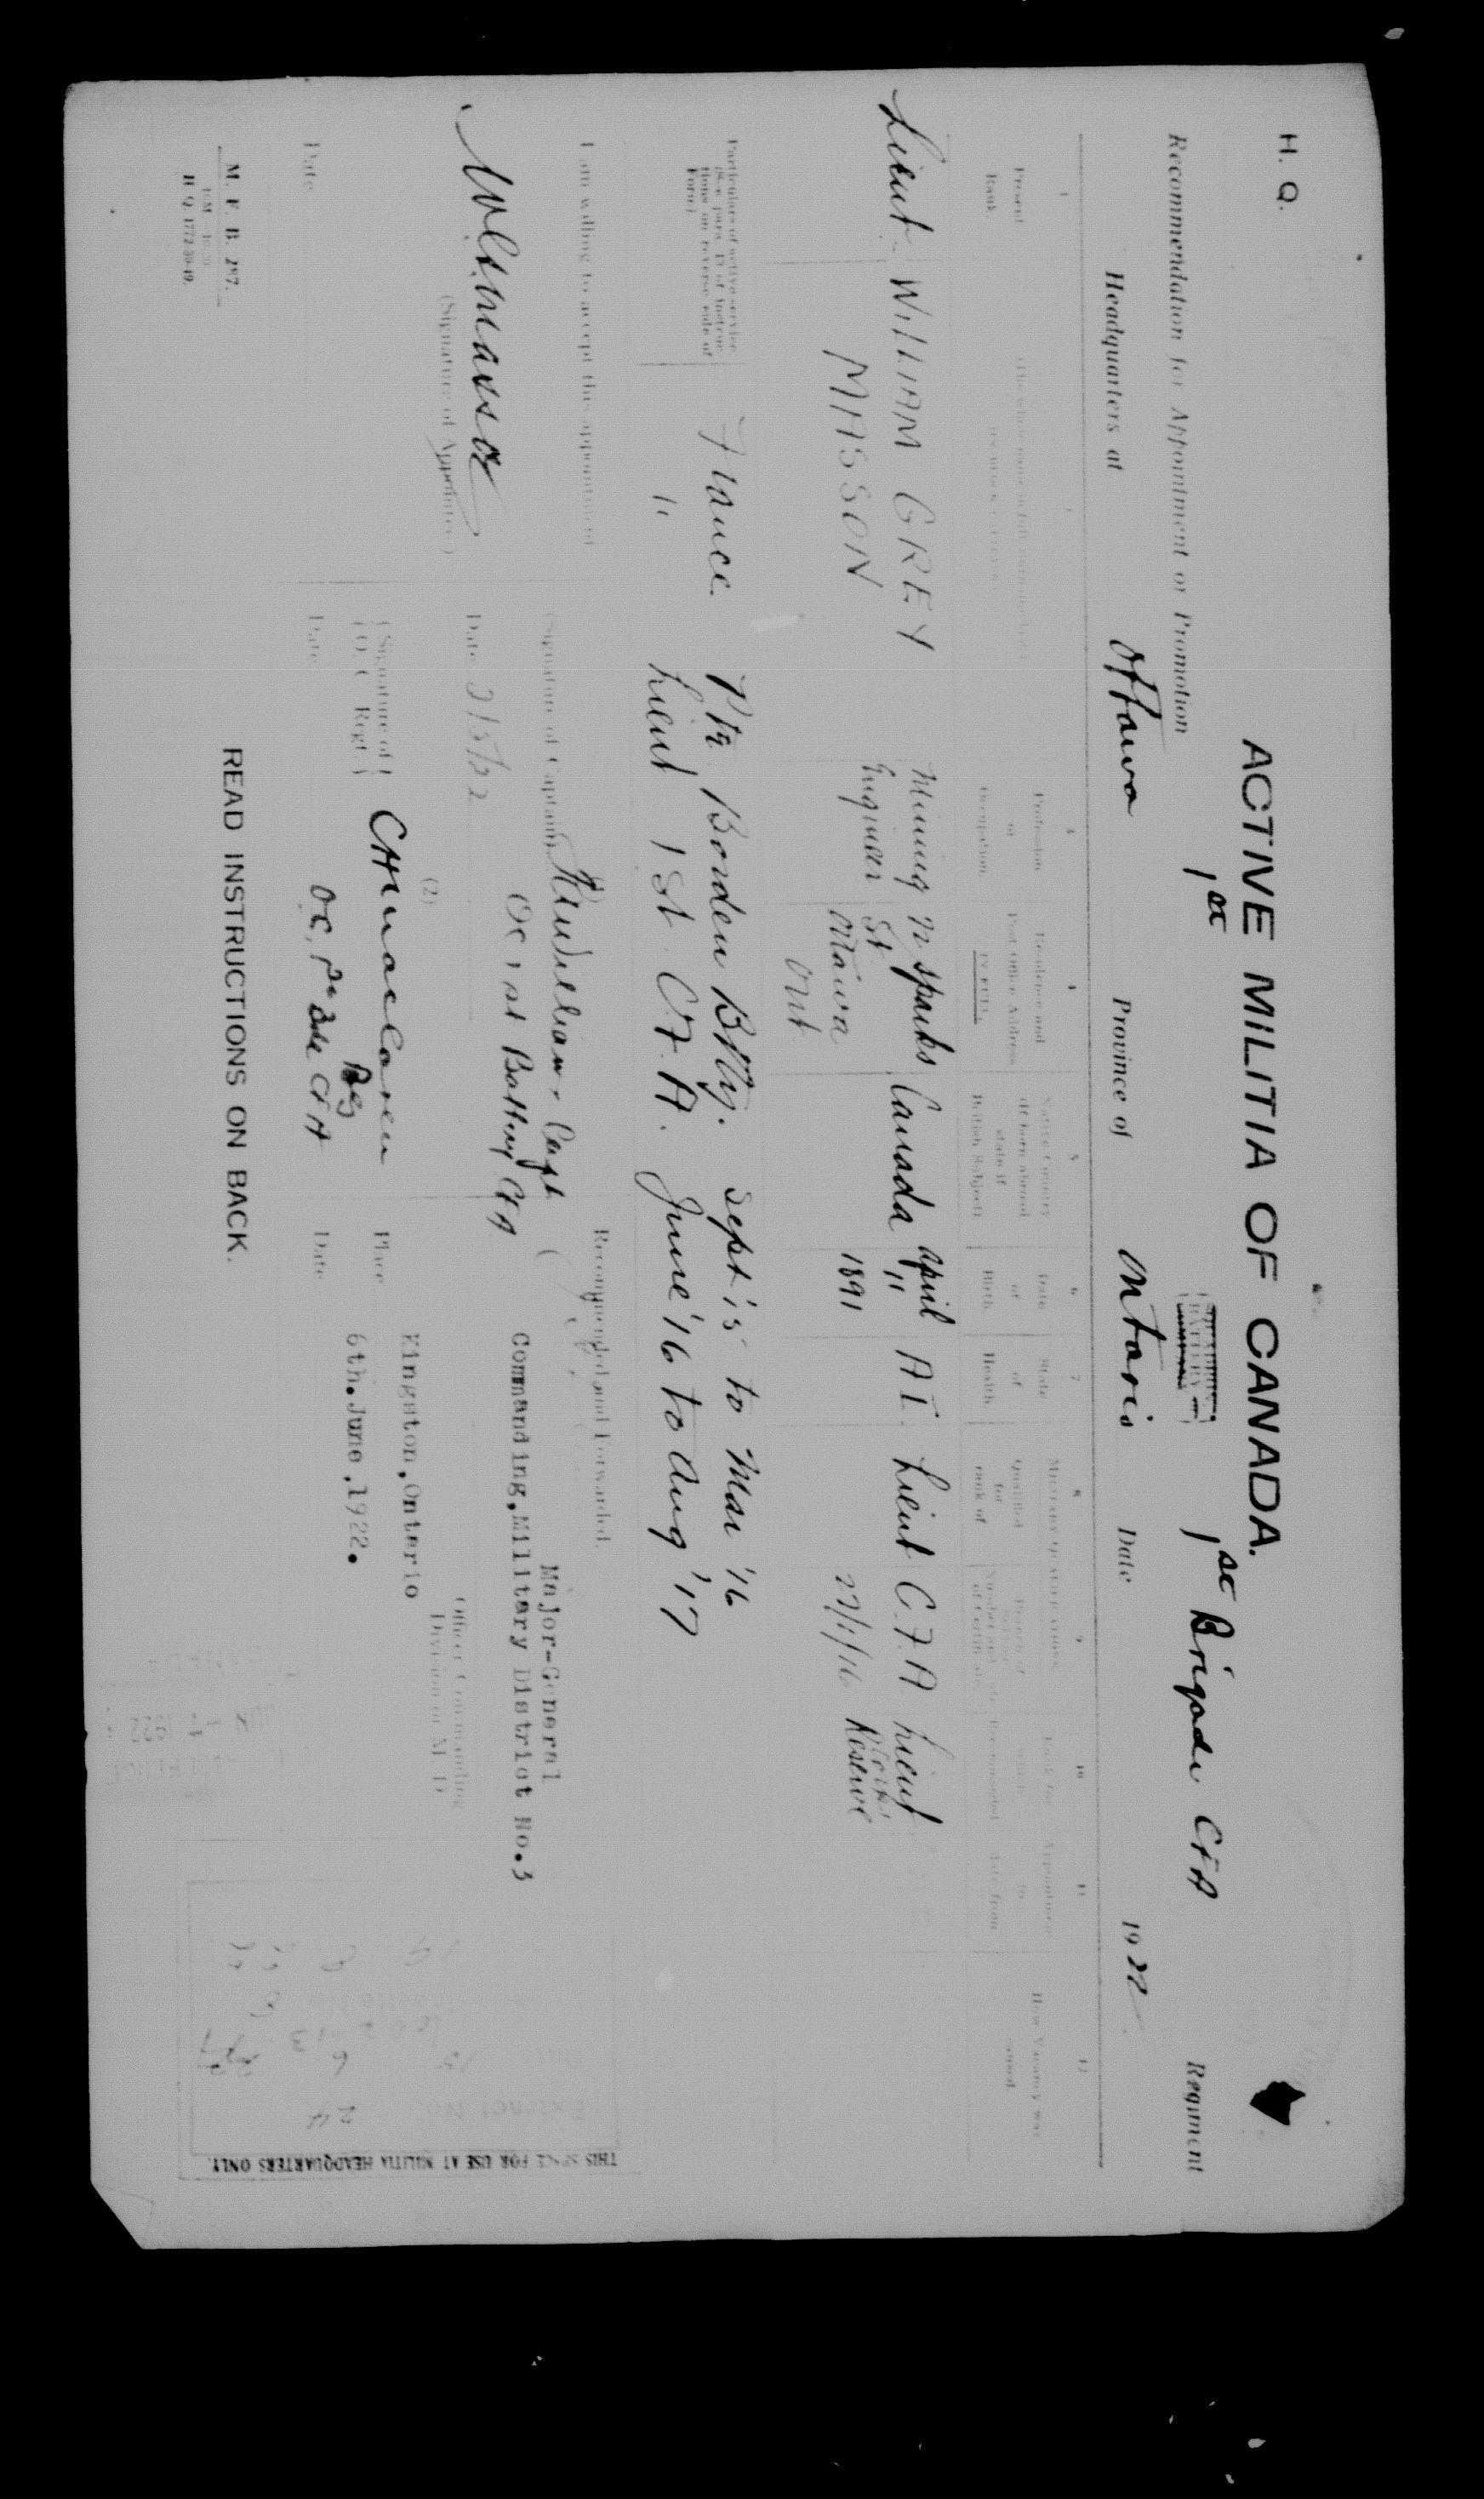 H. Q.
ACTIVE MILITIA OF CANADA.
Recommendation for Appointment or Promotion 1st 1st Brigade CFA Regiment
Headquarters at Ottawa Province of Ontario Date 1922
1 2 3 4 5 6 7 8 9 10 11 12
Present Rank.
Profession or Occupation.
Residence and Post Office Address IN FULL.
Date of Birth.
State of Health.
Qualified for rank of
How Vacancy was caused.
Lieut. WILLIAM GREY Mining n sparks Canada april A I. Lieut C.F.A Lieut
MASSON Engineer St 11 27/1/16 Corps
Ottawa 1891 Reserve
Ont.
Particulars of active service (See para. 13 of Instructions on reverse side of Form)
France. Pte Borden Btty. Sept '15 to Mar '16
" Lieut 1st C.F.A. June '16 to Aug '17
I am willing to accept this appointment
Recommended and Forwarded.
(Signature of Captain) Capt
OC 1st Battery CFA
Major-General
Commanding, Military District No.3
WGMasson
(Signature of Appointee)
Date 2/5/22
(2)
Officer Commanding
Division or M. D.
{Signature of O. C. Regt.} CHMaclaren
Place Kingston, Ontario
Date
Date
Date 6th. June, 1922.
M. F. B. 287.
H.Q. 1772-39-19.
READ INSTRUCTIONS ON BACK.
THIS SPACE FOR USE AT MILITIA HEADQUARTERS ONLY.
Extract No.
24